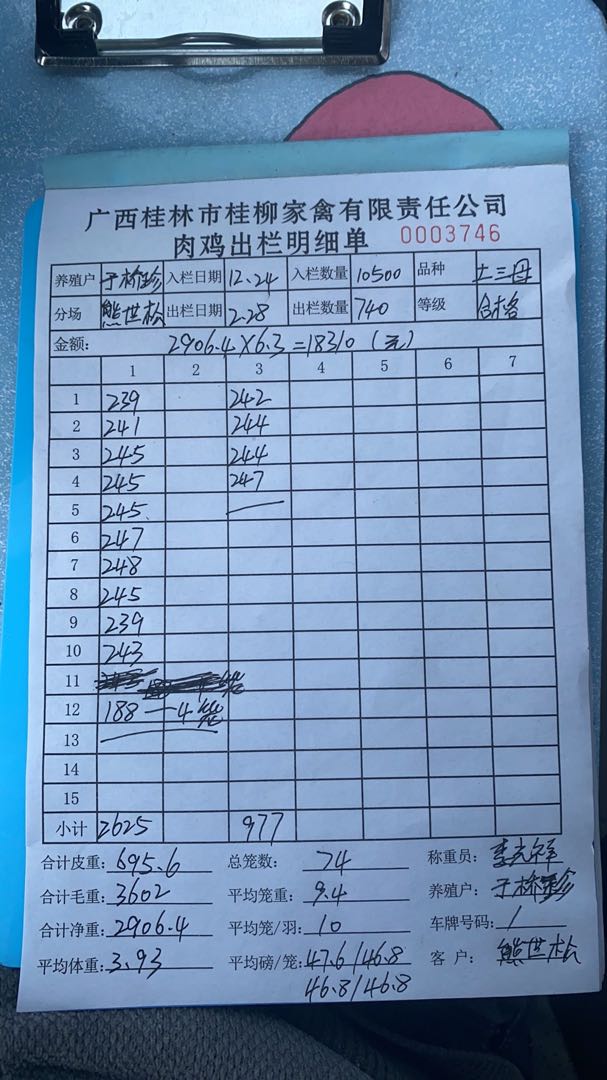 广西桂林市桂柳家禽有限责任公司
肉鸡出栏明细单 0003746
养殖户 于桥珍 入栏日期 12.24 入栏数量 10500 品种 土三母
分场 熊世松 出栏日期 2.28 出栏数量 740 等级 合格
金额: 2906.4×6.3=18310(元)
1 2 3 4 5 6 7
1 239 242
2 241 244
3 245 244
4 245 247
5 245
6 247
7 248
8 245
9 239
10 243
11
12 188—4笼
13
14
15
小计 2625 977
合计皮重: 695.6 总笼数: 74 称重员:
合计毛重: 3602 平均笼重: 9.4 养殖户: 于桥珍
合计净重: 2906.4 平均笼/羽: 10 车牌号码: /
平均体重: 3.93 平均磅/笼: 47.6/46.8 客 户: 熊世松
46.8/46.8